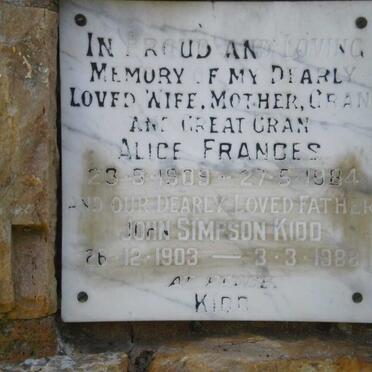 IN PROUD AND LOVING
MEMORY OF MY DEARLY
LOVED WIFE, MOTHER, GRAN
AND GREAT GRAN
ALICE FRANCES
1909 - 27-5-1984
AND OUR DEARLY LOVED FATHER
JOHN SIMPSON KIDD
26-12-1903 — 3-3-1988
AT PEACE.
KIDD